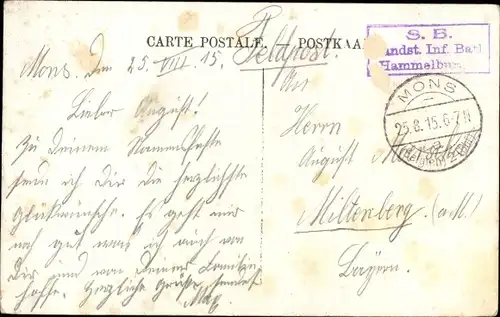 CARTE POSTALE.
POSTKAA
Feldpost.
S. B.
andst. Inf. Batl
Hammelbu
MONS
25.8.15.6-7N
Mons, den 25. VIII. 15.
Lieber August!
Zu Deinem Namensfeste
sende ich Dir die herzlichsten
Glückwünsche. Es geht mir
noch gut was ich auch von
Dir und von Deiner Familie
hoffe. Herzliche Grüße sendet
Max.
An
Herrn
August
Miltenberg (a.M.)
Bayern.